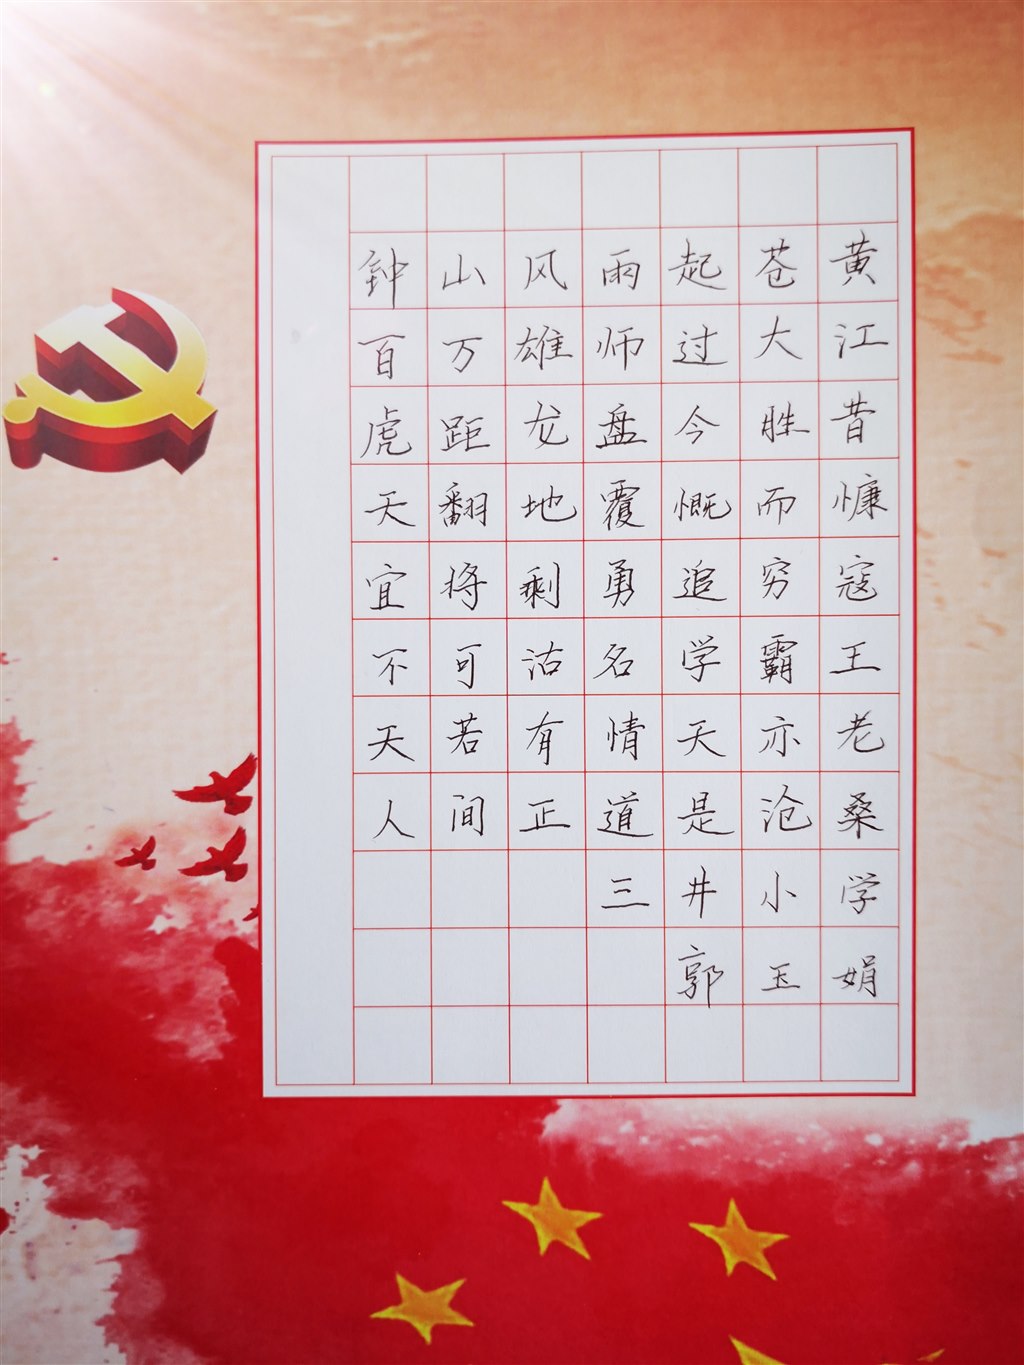 钟山风雨起苍黄
百万雄师过大江
虎距龙盘今胜昔
天翻地覆慨而慷
宜将剩勇追穷寇
不可沽名学霸王
天若有情天亦老
人间正道是沧桑
三井小学
郭玉娟